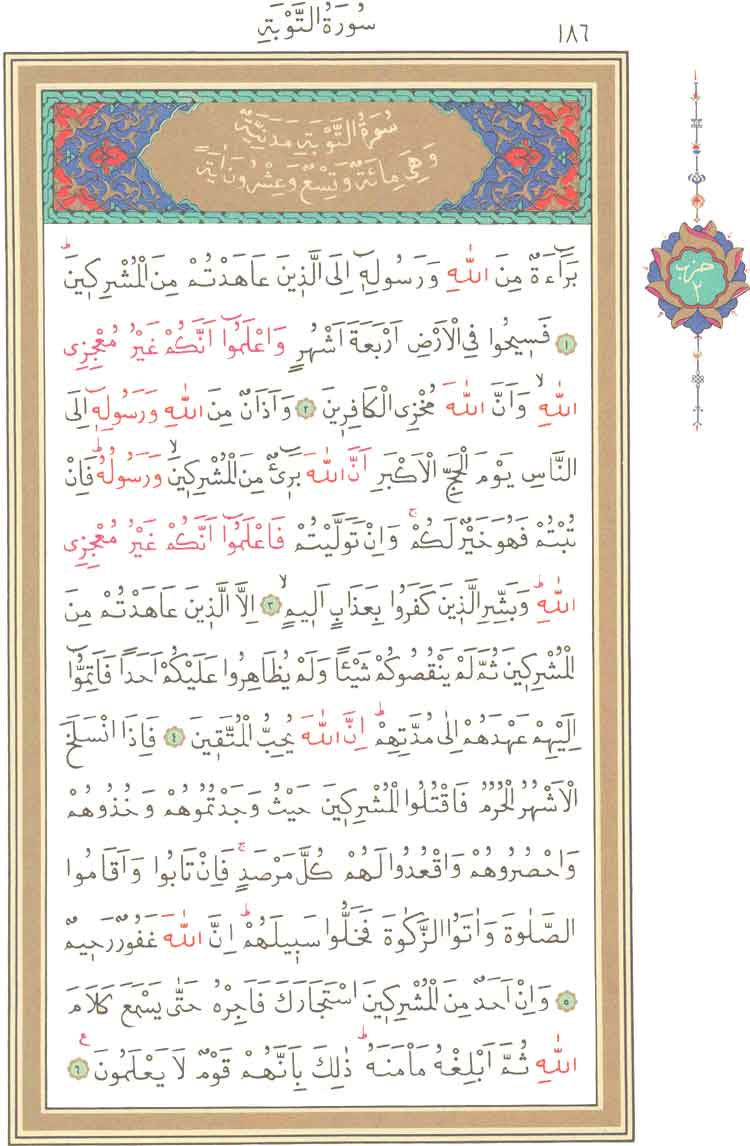 سُورَةُ التَّوْبَةِ
١٨٦
سُورَةُ التَّوْبَةِ مَدَنِيَّةٌ
وَهِيَ مِائَةٌ وَتِسْعٌ وَعِشْرُونَ اٰيَةً
حزب
٢
بَرَٓاءَةٌ مِنَ اللّٰهِ وَرَسُولِهٖٓ اِلَى الَّذٖينَ عَاهَدْتُمْ مِنَ الْمُشْرِكٖينَۜ
١ فَسٖيحُوا فِي الْاَرْضِ اَرْبَعَةَ اَشْهُرٍ وَاعْلَمُٓوا اَنَّكُمْ غَيْرُ مُعْجِزِي
اللّٰهِۙ وَاَنَّ اللّٰهَ مُخْزِي الْكَافِرٖينَ ٢ وَاَذَانٌ مِنَ اللّٰهِ وَرَسُولِهٖٓ اِلَى
النَّاسِ يَوْمَ الْحَجِّ الْاَكْبَرِ اَنَّ اللّٰهَ بَرٖٓيءٌ مِنَ الْمُشْرِكٖينَۙ وَرَسُولُهُۜ فَاِنْ
تُبْتُمْ فَهُوَ خَيْرٌ لَكُمْۚ وَاِنْ تَوَلَّيْتُمْ فَاعْلَمُٓوا اَنَّكُمْ غَيْرُ مُعْجِزِي
اللّٰهِۜ وَبَشِّرِ الَّذٖينَ كَفَرُوا بِعَذَابٍ اَلٖيمٍۙ ٣ اِلَّا الَّذٖينَ عَاهَدْتُمْ مِنَ
الْمُشْرِكٖينَ ثُمَّ لَمْ يَنْقُصُوكُمْ شَيْـٔاً وَلَمْ يُظَاهِرُوا عَلَيْكُمْ اَحَداً فَاَتِمُّٓوا
اِلَيْهِمْ عَهْدَهُمْ اِلٰى مُدَّتِهِمْۜ اِنَّ اللّٰهَ يُحِبُّ الْمُتَّقٖينَ ٤ فَاِذَا انْسَلَخَ
الْاَشْهُرُ الْحُرُمُ فَاقْتُلُوا الْمُشْرِكٖينَ حَيْثُ وَجَدْتُمُوهُمْ وَخُذُوهُمْ
وَاحْصُرُوهُمْ وَاقْعُدُوا لَهُمْ كُلَّ مَرْصَدٍۚ فَاِنْ تَابُوا وَاَقَامُوا
الصَّلٰوةَ وَاٰتَوُا الزَّكٰوةَ فَخَلُّوا سَبٖيلَهُمْۜ اِنَّ اللّٰهَ غَفُورٌ رَحٖيمٌ
٥ وَاِنْ اَحَدٌ مِنَ الْمُشْرِكٖينَ اسْتَجَارَكَ فَاَجِرْهُ حَتّٰى يَسْمَعَ كَلَامَ
اللّٰهِ ثُمَّ اَبْلِغْهُ مَأْمَنَهُۜ ذٰلِكَ بِاَنَّهُمْ قَوْمٌ لَا يَعْلَمُونَ ع ٦